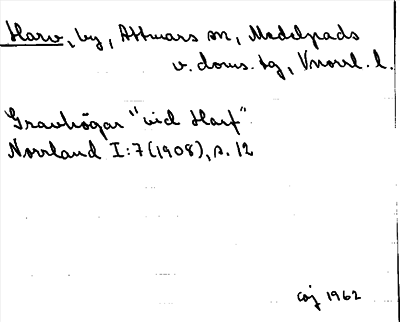 Harv, by, Attmars sn, Medelpads
v. doms. tg, Vnorrl. l.
Gravhögar "vid Harf"
Norrland I:7(1908), s. 12
CÅj 1962